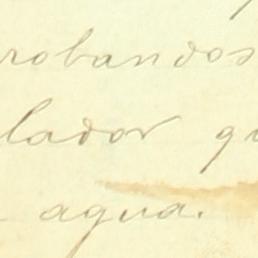 robandos
lador qu
agua.